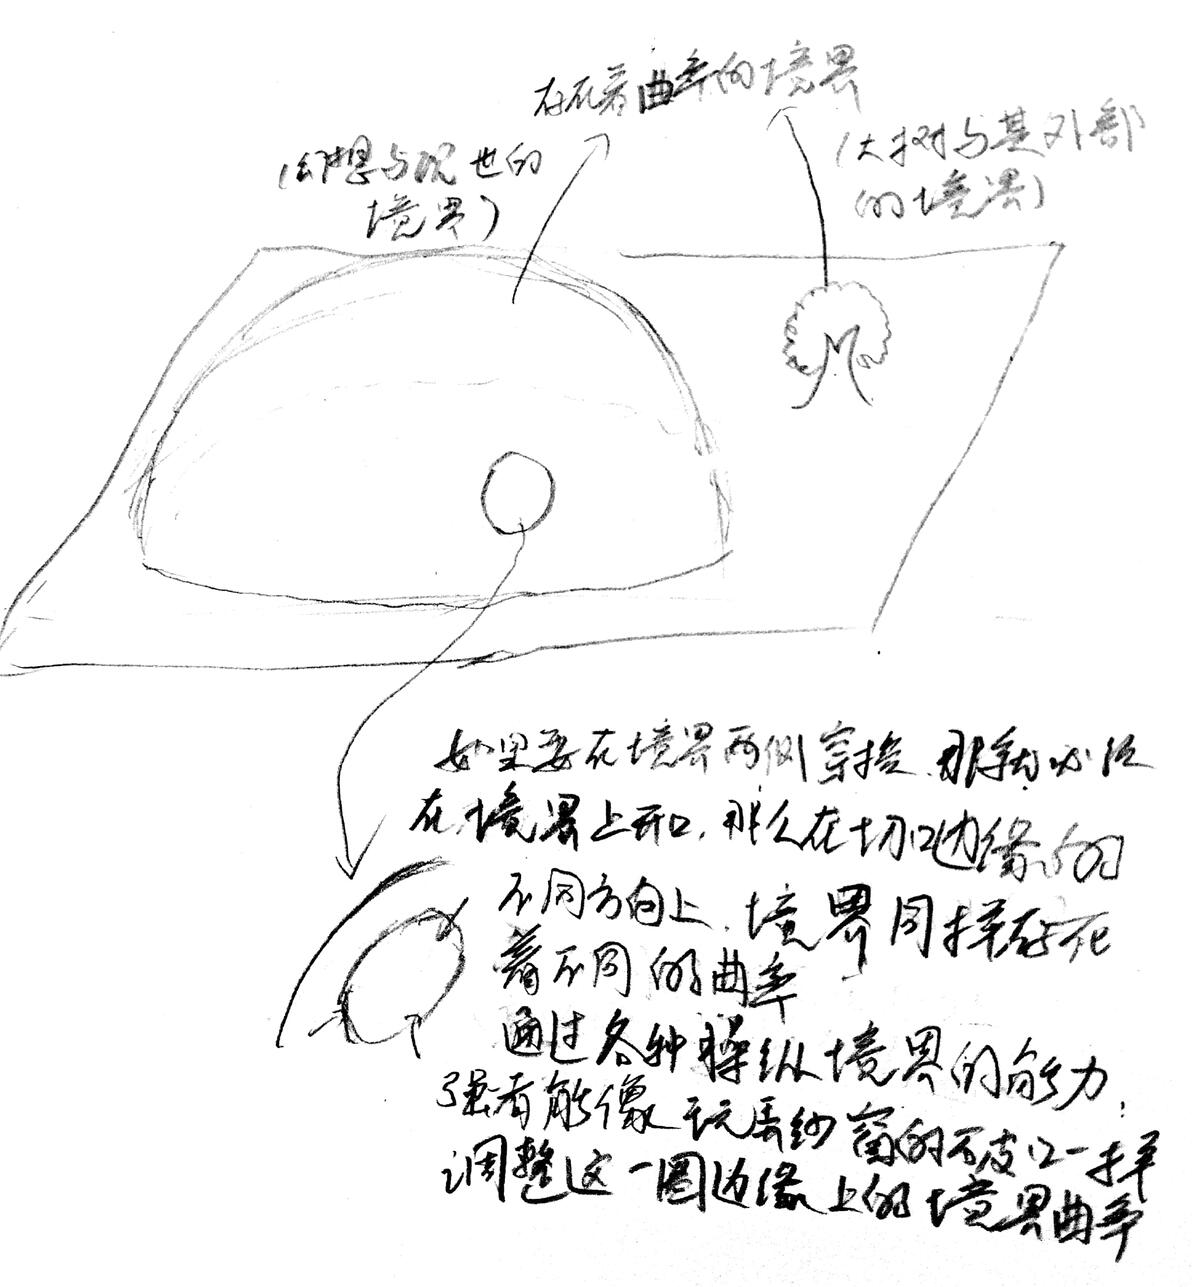 存在着曲率的境界
(幻想与现世的
境界)
(大树与其外部
的境界)
如果要在境界两侧穿梭,那就必须
在境界上开口,那么在切口边缘的
不同方向上,境界同样存在
着不同的曲率
通过各种操纵境界的能力,
强者能像玩弄纱窗的破口一样
调整这一圈边缘上的境界曲率